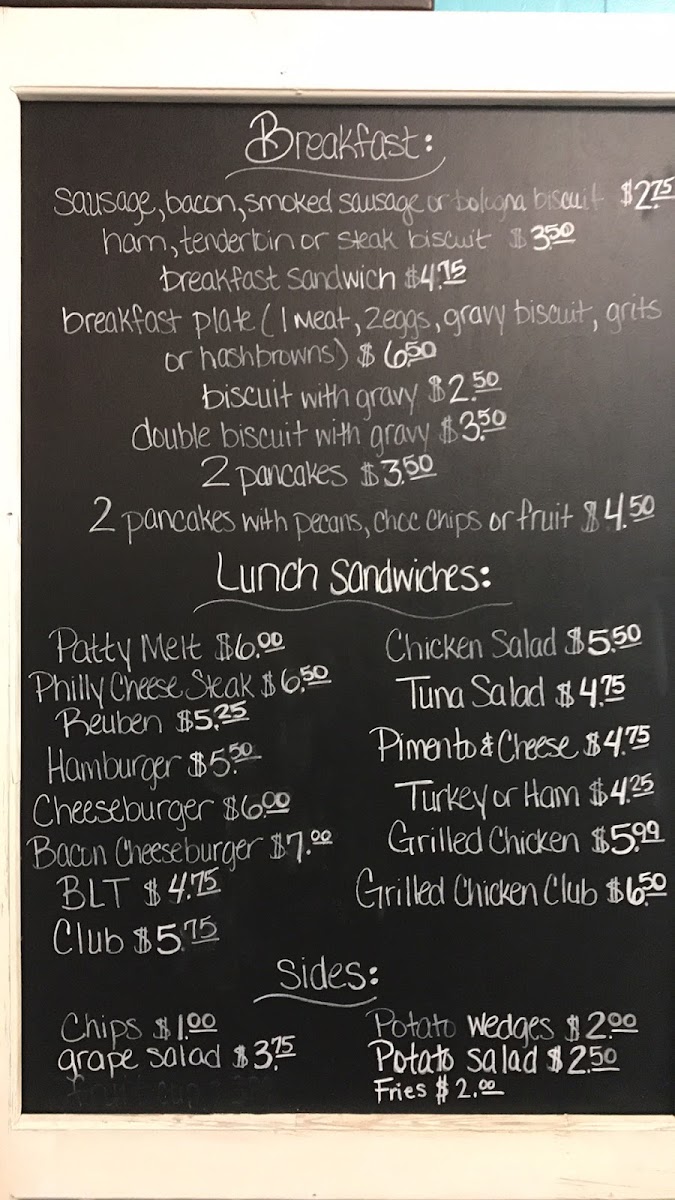 Breakfast:
sausage, bacon, smoked sausage or bologna biscuit $2.75
ham, tenderloin or steak biscuit $3.50
breakfast sandwich $4.75
breakfast plate (1 meat, 2 eggs, gravy biscuit, grits
or hashbrowns) $6.50
biscuit with gravy $2.50
double biscuit with gravy $3.50
2 pancakes $3.50
2 pancakes with pecans, choc chips or fruit $4.50
Lunch Sandwiches:
Patty Melt $6.00
Philly Cheese Steak $6.50
Reuben $5.25
Hamburger $5.50
Cheeseburger $6.00
Bacon Cheeseburger $7.00
BLT $4.75
Club $5.75
Chicken Salad $5.50
Tuna Salad $4.75
Pimento & Cheese $4.75
Turkey or Ham $4.25
Grilled Chicken $5.99
Grilled Chicken Club $6.50
Sides:
Chips $1.00
grape salad $3.75
Potato Wedges $2.00
Potato salad $2.50
Fries $2.00